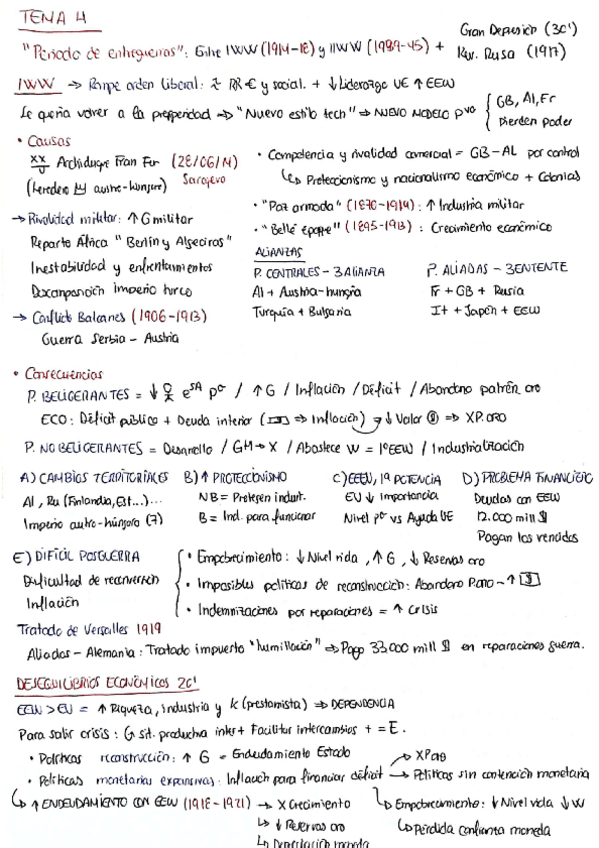 TEMA 4
"Periodo de entreguerras": Entre IWW (1914-18) y IIWW (1939-45) + Gran Depresión (30') Rev. Rusa (1917)
IWW → Rompe orden liberal: RR € y social. + ↓ Liderazgo UE ↑ EEUU
Se quería volver a la prosperidad → "Nuevo estilo tech" ⇒ NUEVO MODELO pvo { GB, Al, Fr Pierden poder
• Causas
Archiduque Fran Fer (28/06/14) Sarajevo
(heredero austro-húngaro)
→ Rivalidad militar: ↑ G militar
Reparto África "Berlín y Algeciras"
Inestabilidad y enfrentamientos
Descomposición imperio turco
→ Conflicto Balcanes (1906-1913)
Guerra Serbia - Austria
• Competencia y rivalidad comercial = GB-AL por control
↳ Proteccionismo y nacionalismo económico + Colonias
• "Paz armada" (1870-1914): ↑ Industria militar
• "Belle Epoque" (1895-1913): Crecimiento económico
ALIANZAS
P. CENTRALES - 3 ALIANZA
Al + Austria-hungría
Turquía + Bulgaria
P. ALIADAS - 3 ENTENTE
Fr + GB + Rusia
It + Japón + EEUU
• Consecuencias
P. BELIGERANTES = ↓ eSA po / ↑ G / Inflación / Déficit / Abandono patrón oro
ECO: Déficit público + Deuda interior ( ⇒ Inflación) → ↓ Valor $ ⇒ XP.oro
P. NO BELIGERANTES = Desarrollo / GM → X / Abastece W = 1º EEUU / Industrialización
A) CAMBIOS TERRITORIALES
Al, Ru (Finlandia, Est...)...
Imperio autro-húngaro (7)
B) ↑ PROTECCIONISMO
NB = Protegen indust.
B = Ind. para funcionar
C) EEUU, 1ª POTENCIA
EU ↓ importancia
Nivel po vs Ayuda UE
D) PROBLEMA FINANCIERO
Deudas con EEUU
12.000 mill $
Pagan los vencidos
E) DIFÍCIL POSGUERRA
Dificultad de reconversión
Inflación
• Empobrecimiento: ↓ Nivel vida, ↑ G, ↓ Reservas oro
• Imposibles políticas de reconstrucción: Abandono P.oro - ↑ $
• Indemnizaciones por reparaciones = ↑ Crisis
Tratado de Versalles 1919
Aliados - Alemania: Tratado impuesto "humillación" ⇒ Pago 33.000 mill $ en reparaciones guerra.
DESEQUILIBRIOS ECONÓMICOS 20'
EEUU > EU = ↑ Riqueza, industria y K (prestamista) ⇒ DEPENDENCIA
Para salir crisis: G sit. productiva inter + Facilitar intercambios + = E.
• Políticas reconstrucción: ↑ G = Endeudamiento Estado
• Políticas monetarias expansivas: Inflación para financiar déficit → XP oro
→ Políticas sin contención monetaria
↳ Empobrecimiento: ↓ Nivel vida ↓ W
↳ Pérdida confianza moneda
↳ ↑ ENDEUDAMIENTO CON EEUU (1918-1921) → X Crecimiento
↳ ↓ Reservas oro
↳ Depreciación moneda